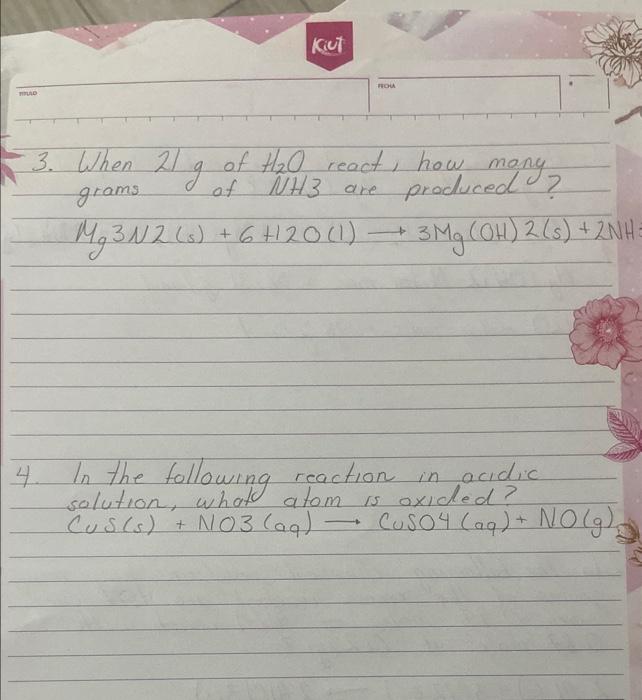 Kiut
TITULO
FECHA
3. When 21 g of H2O react, how many
grams of NH3 are produced?
Mg3N2(s) + 6H2O(l) → 3Mg(OH)2(s) + 2NH3
4. In the following reaction in acidic
solution, what atom is oxided?
CuS(s) + NO3(aq) → CuSO4(aq) + NO(g)